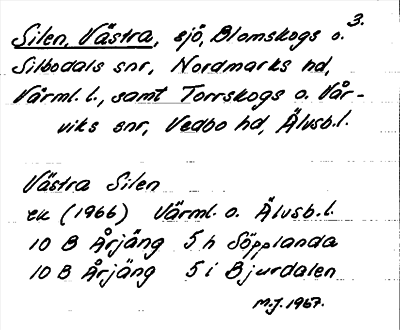 3.
Silen, Västra, sjö, Blomskogs o.
Silbodals snr, Nordmarks hd,
Värml. l., samt Torrskogs o. Vår-
viks snr, Vedbo hd, Älvsb. l.
Västra Silen
ek (1966) Värml. o. Älvsb. l.
10 B Årjäng 5 h Söpplanda
10 B Årjäng 5 i Bjurdalen
M.J. 1967.